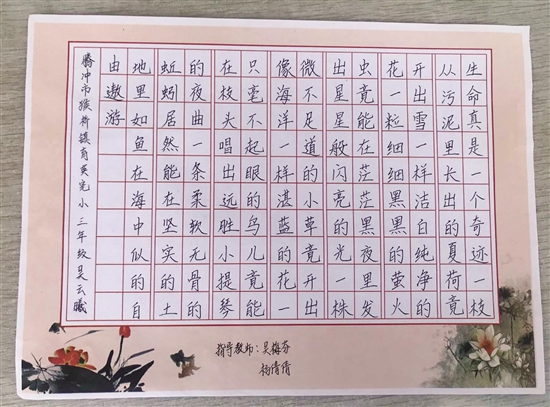 生命真是一个奇迹一枝
从污泥里长出的夏荷竟
开出雪一样洁白纯净的
花一粒细细黑黑的萤火
虫竟能在茫茫黑夜里发
出星星般闪亮的光一株
微不足道的小草竟开出
像海洋一样湛蓝的花一
只毫不起眼的鸟儿竟能
在枝头唱出远胜小提琴
的夜曲一条柔软无骨的
蚯蚓居然能在坚实的土
地里如鱼在海中似的自
由遨游
腾冲市猴桥镇完小三年级吴云曦
指导教师：吴梅芬
杨倩倩